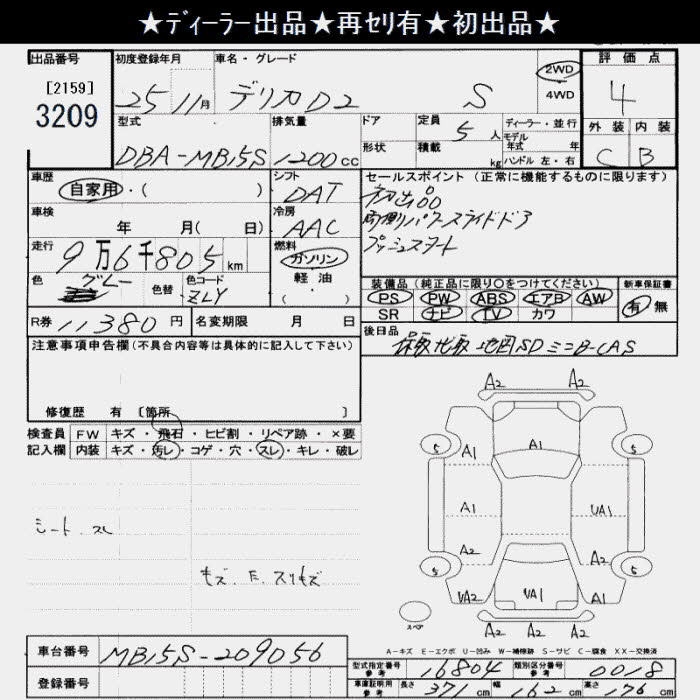 ★ディーラー出品★再セリ有★初出品★
出品番号 初度登録年月 車名・グレード 評価点
[2159]
3209
25 11月 デリカD2 S 2WD 4WD 4
型式 排気量 ドア 定員 5人 ディーラー・並行 外装 内装
形状 積載 kg モデル年式 年 ハンドル 左・右
DBA-MB15S 1200cc C B
車歴 シフト セールスポイント (正常に機能するものに限ります)
自家用・( ) DAT 初出品
車検 冷房 両側パワースライドドア
年 月( 日) AAC プッシュスタート
走行 燃料
9万6千805km ガソリン
軽油
( ・ )
色 グレー 色替 色コード ZLY
装備品 (純正品に限り○をつけてください) 新車保証書
PS PW ABS エアB AW 有・無
SR ナビ TV カワ
R券 11380円 名変期限 月 日
後日品 保取 地取 地図SD ミニB-CAS
注意事項申告欄(不具合内容等は具体的に記入して下さい)
修復歴 有 [箇所 ]
検査員 FW キズ・飛石・ヒビ割・リペア跡・×要
記入欄 内装 キズ・汚レ・コゲ・穴・スレ・キレ・破レ
A2 A2
5 A1 A1 5
A1 UA1
A2 A2
5 UA2 UA1 VA1 5
スペア
A2 A2 A2
シート スレ
キズ.E.スリキズ
A-キズ E-エクボ U-凹み W-補修跡 S-サビ C-腐食 XX-交換済
車台番号 MB15S-209056
型式指定番号 参考 16804 類別区分番号 参考 0018
登録番号 車庫証明用 参考 長さ 371cm 幅 162cm 高さ 176cm